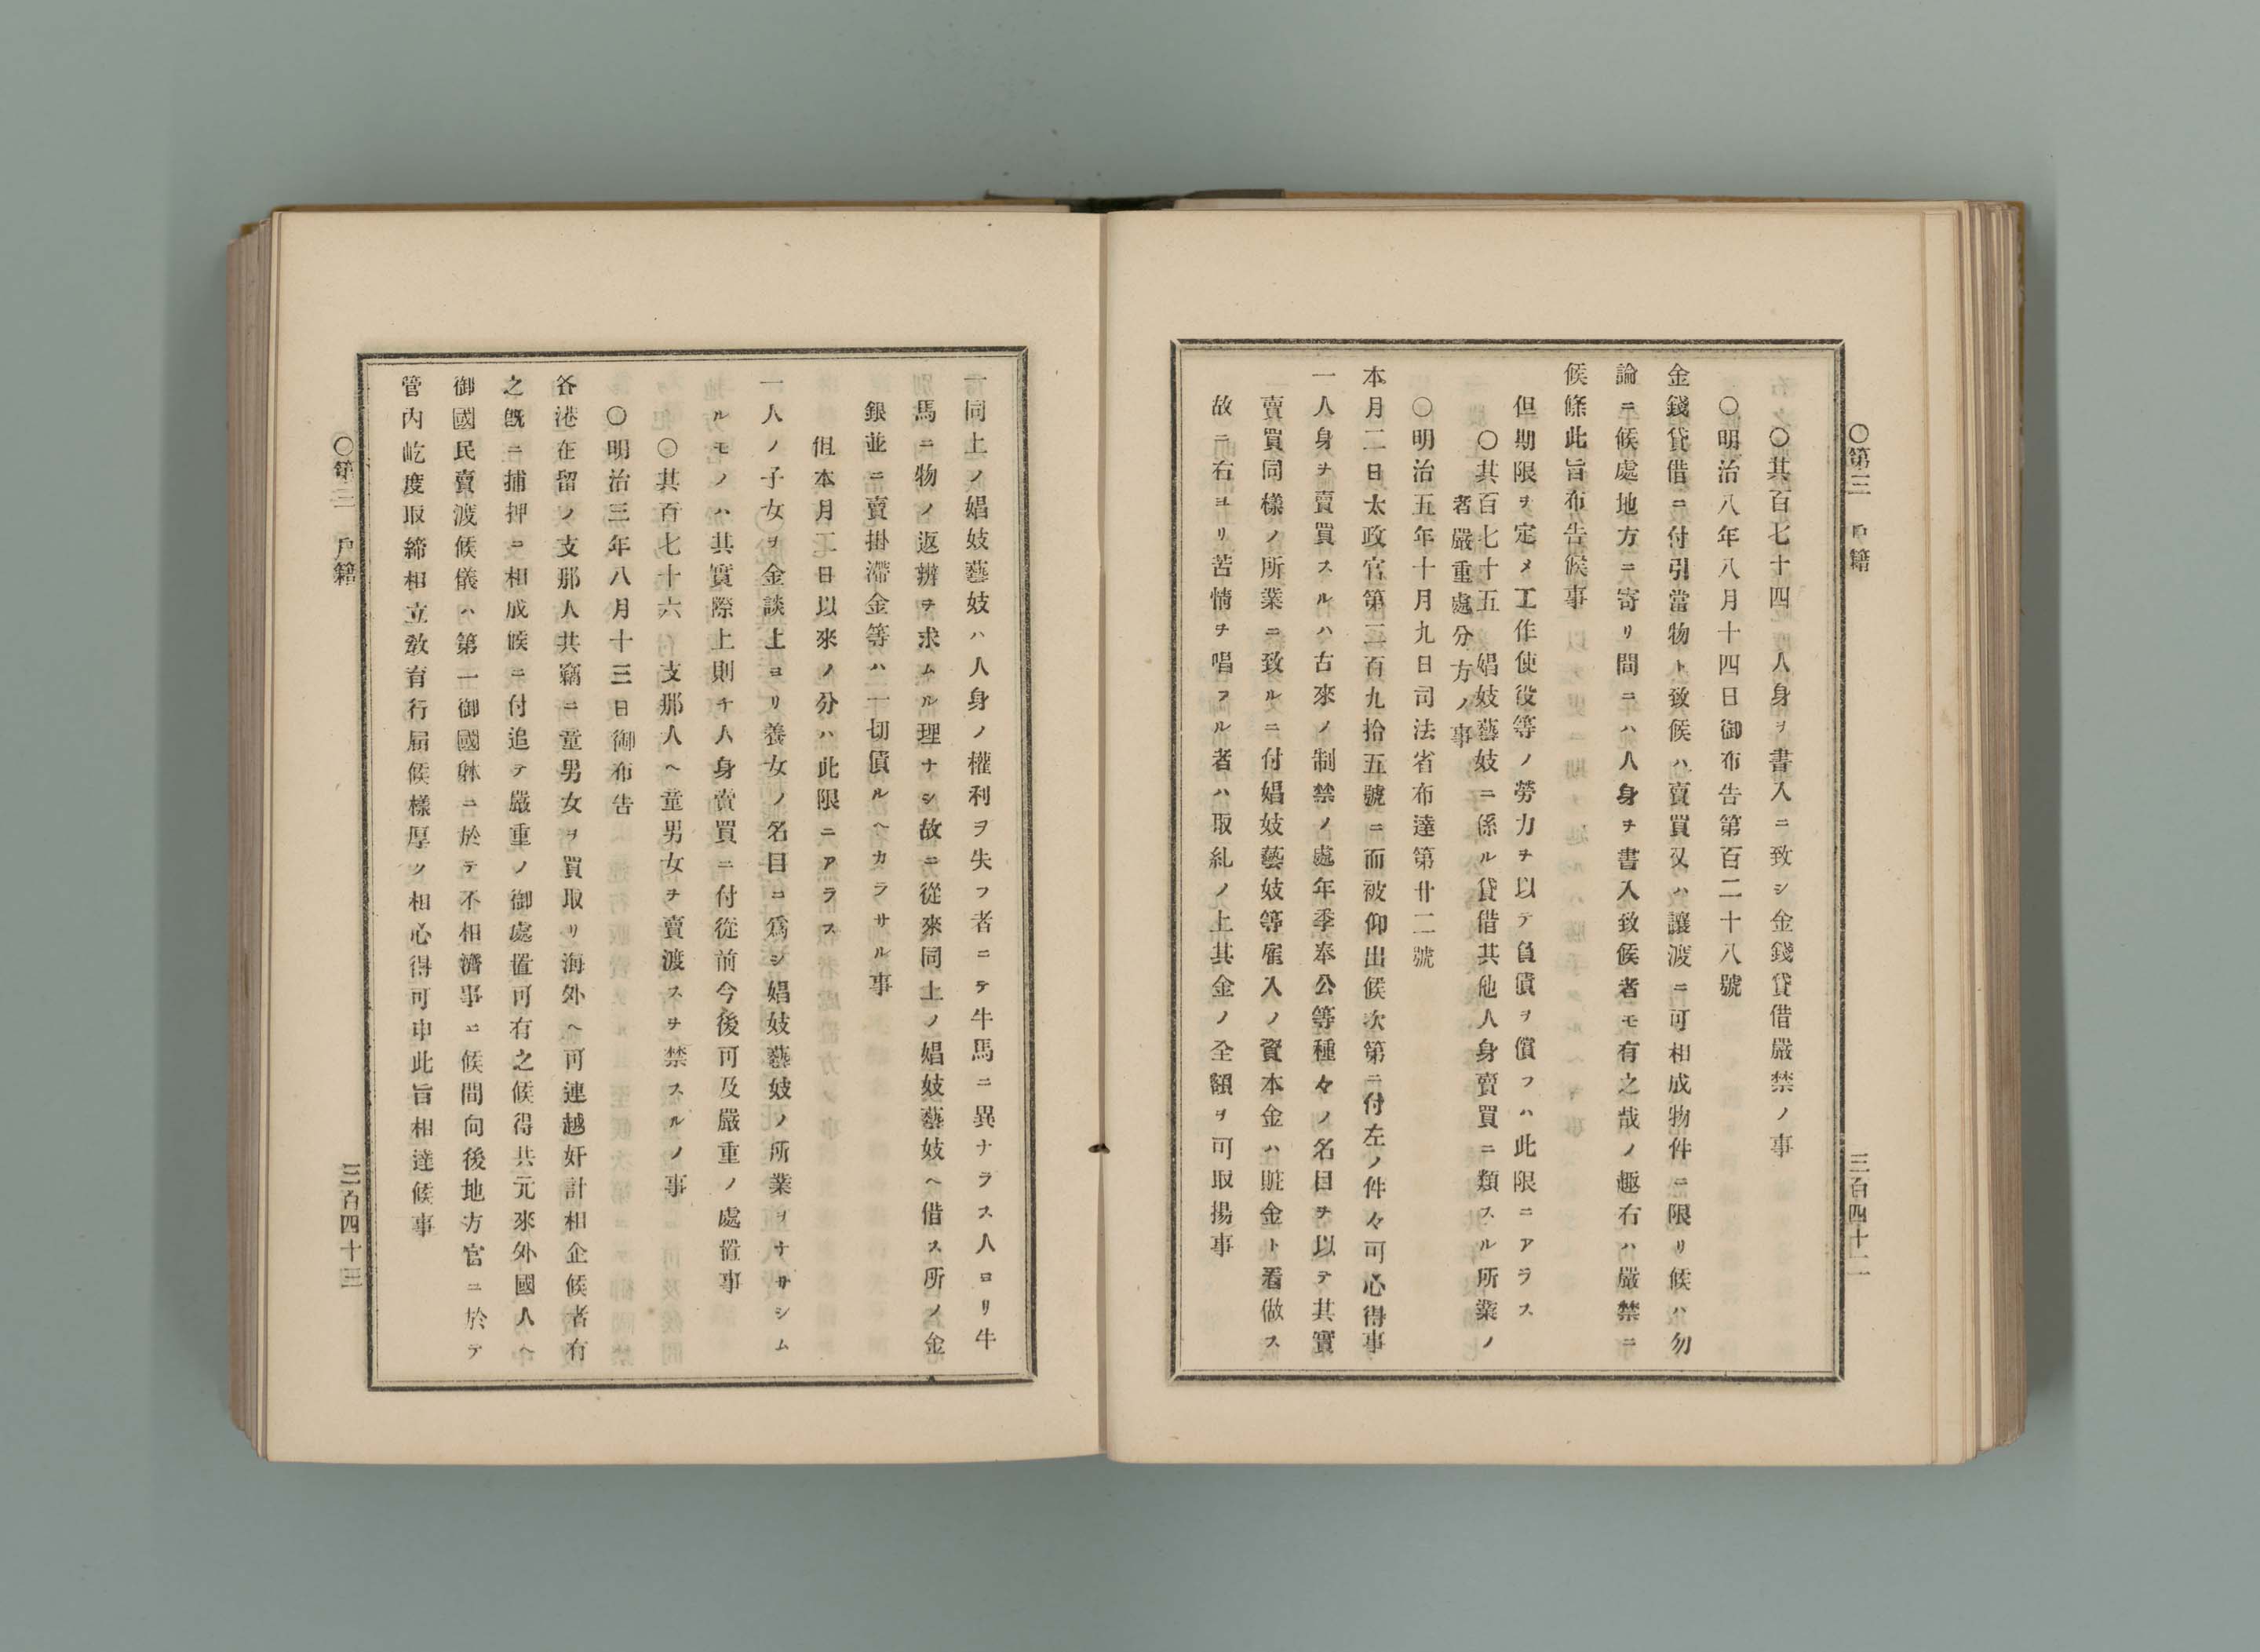 〇第三　戸籍　三百四十二
〇其百七十四　人身ヲ書入ニ致シ金錢貸借嚴禁ノ事
〇明治八年八月十四日御布告第百二十八號
金錢貸借ニ付引當物ト致候ハ賣買又ハ讓渡ニ可相成物件ニ限リ候ハ勿
論ニ候處地方ニ寄リ間ニハ人身ヲ書入致候者モ有之哉ノ趣右ハ嚴禁ニ
候條此旨布告候事
但期限ヲ定メ工作使役等ノ勞力ヲ以テ負債ヲ償フハ此限ニアラス
〇其百七十五　娼妓藝妓ニ係ル貸借其他人身賣買ニ類スル所業ノ
者嚴重處分方ノ事
〇明治五年十月九日司法省布達第廿二號
本月二日太政官第二百九拾五號ニ而被仰出候次第ニ付左ノ件々可心得事
一人身ヲ賣買スルハ古來ノ制禁ノ處年季奉公等種々ノ名目ヲ以テ其實
賣買同樣ノ所業ニ致ルニ付娼妓藝妓等雇入ノ資本金ハ贓金ト看做ス
故ニ右ヨリ苦情ヲ唱フル者ハ取糺ノ上其金ノ全額ヲ可取揚事
一同上ノ娼妓藝妓ハ人身ノ權利ヲ失フ者ニテ牛馬ニ異ナラス人ヨリ牛
馬ニ物ノ返辨ヲ求ムル理ナシ故ニ從來同上ノ娼妓藝妓ヘ借ス所ノ金
銀並ニ賣掛滯金等ハ一切債ルヘカラサル事
但本月二日以來ノ分ハ此限ニアラス
一人ノ子女ヲ金談上ヨリ養女ノ名目ニ爲シ娼妓藝妓ノ所業ヲナサシム
ルモノハ其實際上則チ人身賣買ニ付從前今後可及嚴重ノ處置事
〇其百七十六　支那人ヘ童男女ヲ賣渡スヲ禁スルノ事
〇明治三年八月十三日御布告
各港在留ノ支那人共竊ニ童男女ヲ買取リ海外ヘ可連越奸計相企候者有
之旣ニ捕押ニ相成候ニ付追テ嚴重ノ御處置可有之候得共元來外國人ヘ
御國民賣渡候儀ハ第一御國躰ニ於テ不相濟事ニ候間向後地方官ニ於テ
管内屹度取締相立敎育行屆候樣厚ク相心得可申此旨相達候事
〇第三　戸籍　三百四十三